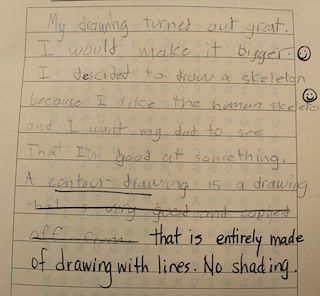 My drawing turned out great.
I would make it bigger.
I descided to draw a skeleton
because I like the human skeleto
and I want my dad to see
That I'm good at something.
A contour drawing is a drawing
that is very good and copied
off from. that is entirely made
of drawing with lines. No shading.